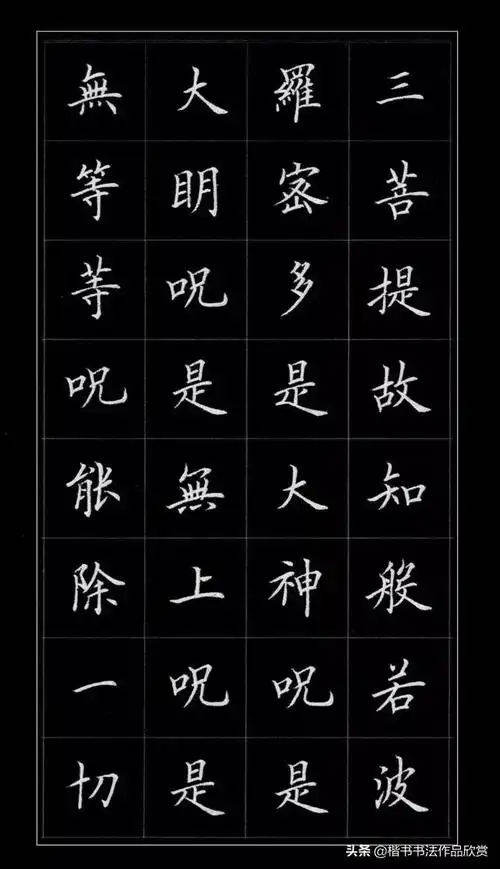 三菩提故知般若波
羅密多是大神呪是
大明呪是無上呪是
無等等呪能除一切
头条 @楷书书法作品欣赏